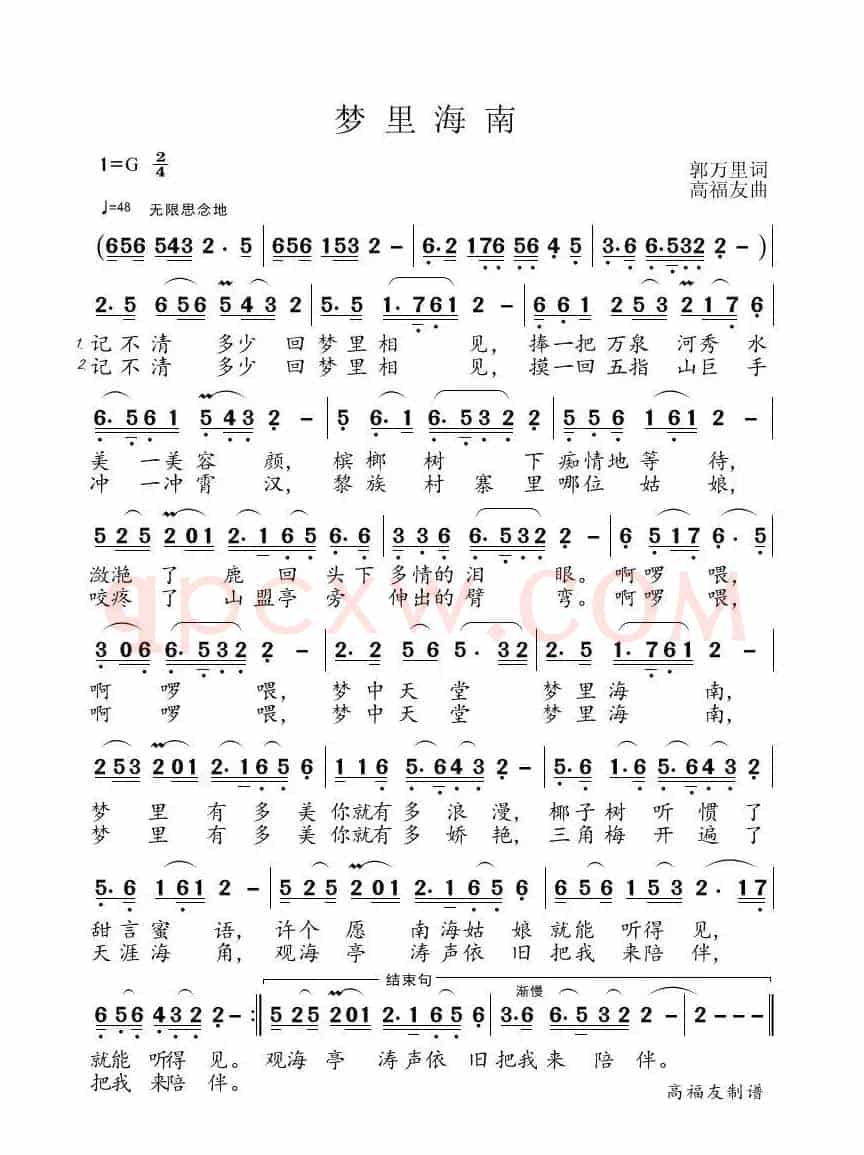 梦里海南
1=G 2/4
郭万里词
高福友曲
♩=48 无限思念地
(656 543 2. 5 | 656 153 2 - | 6.2 176 56 4 5 | 3.6 6.532 2 - )
2.5 656 543 2 | 5.5 1.761 2 - | 661 253 217 6
1.记不清 多少 回梦里相 见，捧一把万泉 河秀 水
2.记不清 多少 回梦里相 见，摸一回五指 山巨 手
6.561 543 2 - | 5 6.1 6.532 2 | 556 161 2 -
美 一美容 颜，槟榔 树 下痴情地等 待，
冲 一冲霄 汉，黎族 村 寨里哪位 姑 娘，
525 201 2.165 6.6 | 336 6.532 2 - | 6 517 6. 5
潋滟 了 鹿 回 头下多情的泪 眼。啊啰 喂，
咬疼 了 山盟亭 旁 伸出的臂 弯。啊啰 喂，
3 06 6.532 2 - | 2.2 56 5.32 | 2.5 1.761 2 -
啊 啰 喂， 梦中天堂 梦里海 南，
啊 啰 喂， 梦中天堂 梦里海 南，
253 201 2.165 6 | 116 5.643 2 - | 5.6 1.6 5.643 2
梦 里 有多 美你就有多 浪 漫，椰子树 听 惯 了
梦 里 有多 美你就有多 娇 艳，三角梅 开 遍 了
5.6 161 2 - | 525 201 2.165 6 | 656 153 2. 17
甜言蜜 语，许个 愿 南海姑 娘 就能 听得 见，
天涯海 角，观海 亭 涛声依 旧 把我 来陪 伴，
结束句
渐慢
656 432 2 - :‖ 525 201 2.165 6 | 3.6 6.532 2 - | 2 - - - ‖
就能 听得 见。观海 亭 涛声依 旧把我来 陪 伴。
把我 来陪 伴。
高福友制谱
qpcxw.COM